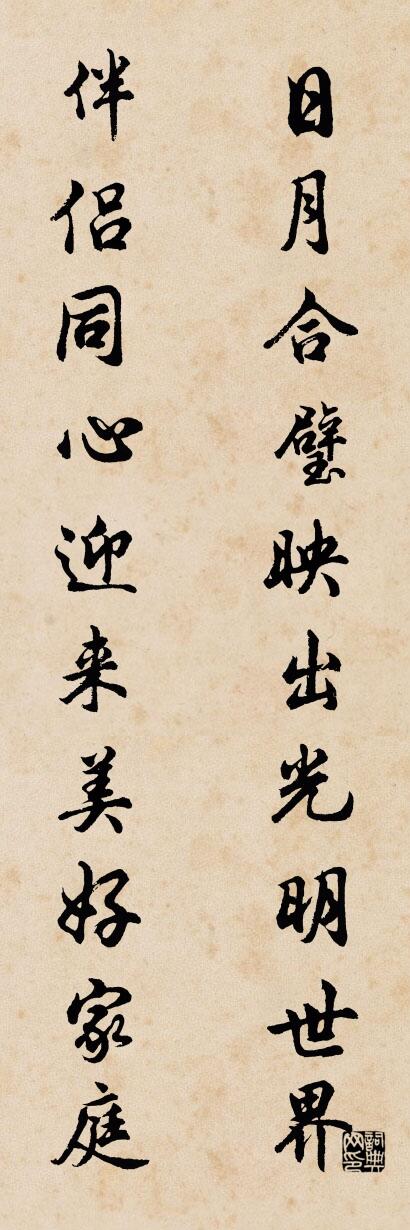 日月合璧映出光明世界
伴侣同心迎来美好家庭
詞典网印